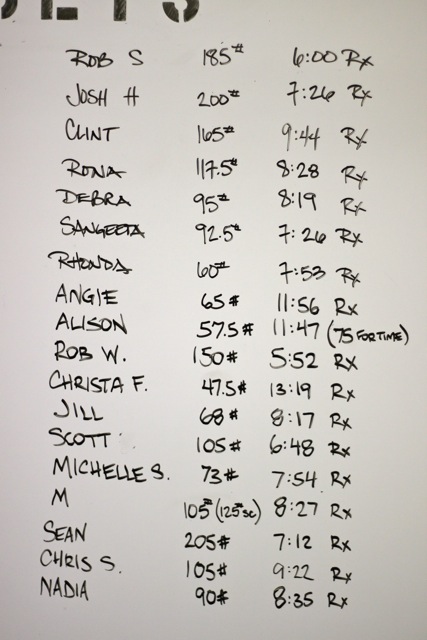 ROB S 185# 6:00 Rx
JOSH H 200# 7:26 Rx
CLINT 165# 9:44 Rx
RONA 117.5# 8:28 Rx
DEBRA 95# 8:19 Rx
SANGEETA 92.5# 7:26 Rx
RHONDA 60# 7:53 Rx
ANGIE 65# 11:56 Rx
ALISON 57.5# 11:47 (75 FOR TIME)
ROB W. 150# 5:52 Rx
CHRISTA F. 47.5# 13:19 Rx
JILL 68# 8:17 Rx
SCOTT 105# 6:48 Rx
MICHELLE S. 73# 7:54 Rx
M 105# (125# SC) 8:27 Rx
SEAN 205# 7:12 Rx
CHRIS S. 105# 9:22 Rx
NADIA 90# 8:35 Rx